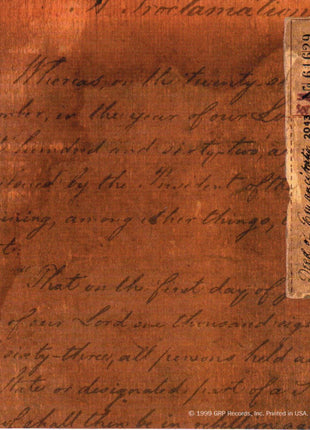 A Proclamation
Whereas, on the twenty se
mber, in the year of our Lor
t hundred and sixty-two, a
tained by the President of the
ining, among other things,
t:
"That on the first day of J
of our Lord one thousand eigh
sixty-three, all persons held a
State or designated part of a S
of shall then be in rebellion ag
© 1999 GRP Records, Inc. Printed in USA.